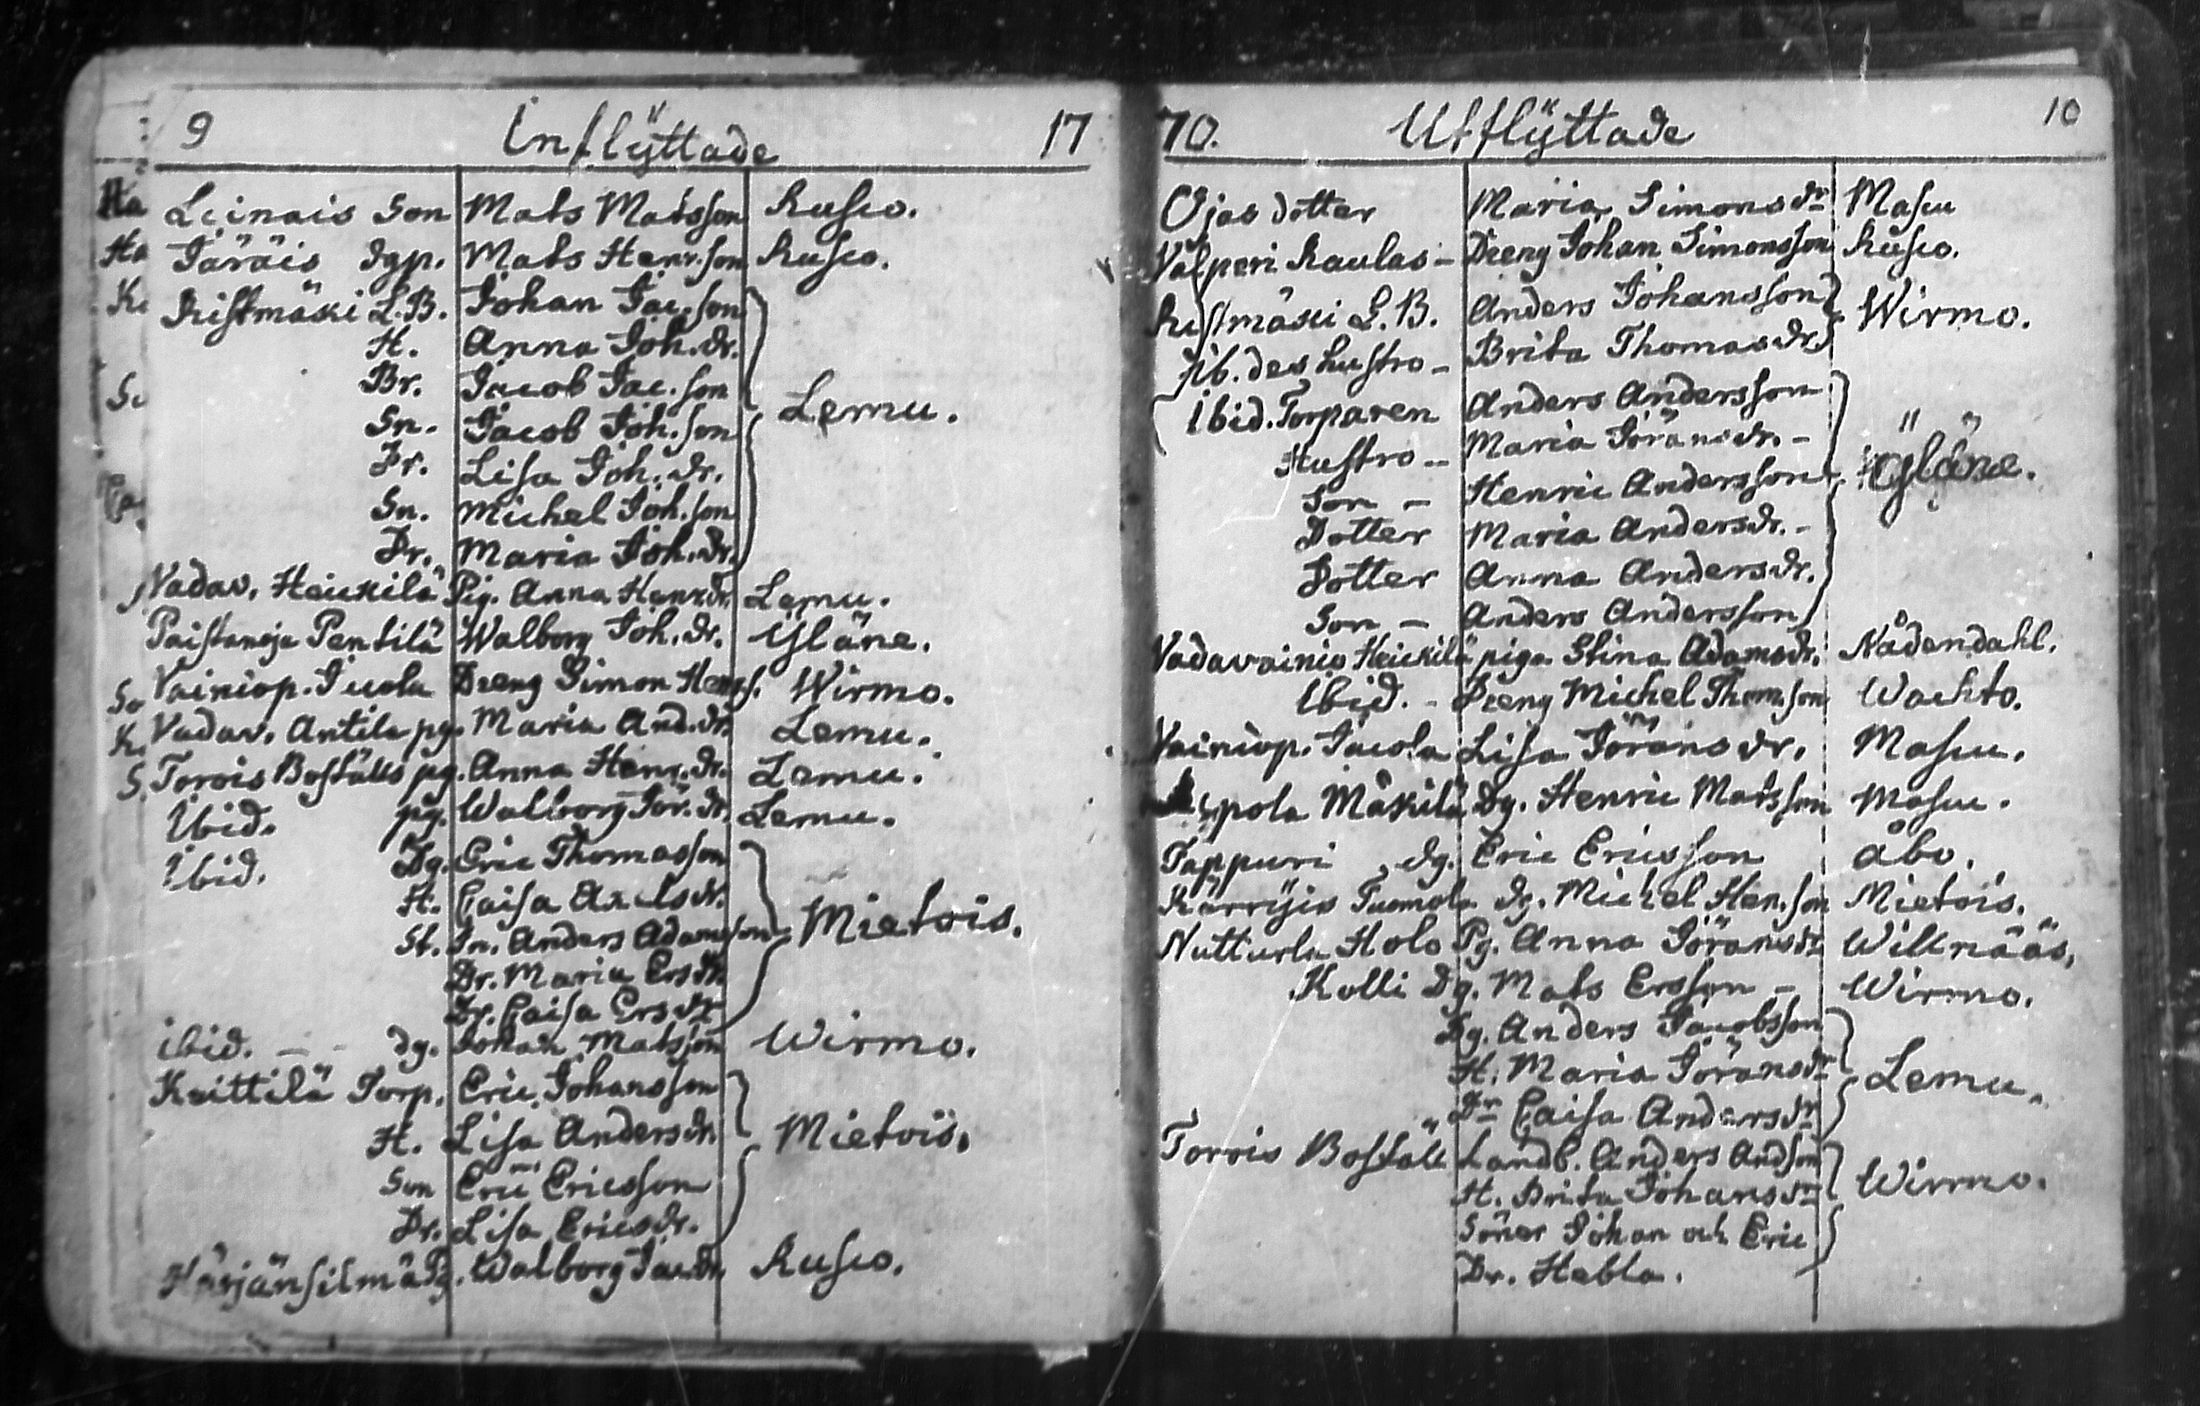 9 Inflÿttade 17
Leinais Son Mats Matsson Rusco.
Järäis dgp. Mats Henr.son Rusco.
Ristmäki L.B. Johan Jac.son
H. Anna Joh.dr.
Br. Jacob Jac.son
Sn. Jacob Joh.son Lemu.
Dr. Lisa Joh.dr.
Sn. Michel Joh.son
Dr. Maria Joh.dr.
Vadav. Heickilä Pig. Anna Henr.dr. Lemu.
Paistanoja Pentilä Walborg Joh.dr. Yläne.
Vainiop. Jucola Dreng Simon Henr.s. Wirmo.
Vadav. Antila pg. Maria And.dr. Lemu.
Torois Boställs pg. Anna Henr.dr. Lemu.
Ibid. pg. Walborg Jör.dr. Lemu.
Ibid. Dg. Eric Thomasson
H. Caisa Axelsdr.
St. Sn. Anders Adamsson Mietois.
Dr. Maria Ersdr.
Dr. Caisa Ersdr
ibid. - - dg. Johan Matsson Wirmo.
Keittilä Torp. Eric Johansson
H. Lisa Andersdr. Mietois.
Son Eric Ericsson
Dr. Lisa Ericsdr.
Härjänsilmä Pg. Walborg Jac.dr. Rusco.
70. Utflÿttade 10
Ojas dotter Maria Simonsdr Mascu
Valperi Raulas - Dreng Johan Simonsson Rusco.
Ristmäki L.B. Anders Johansson Wirmo.
Ib. des hustro - Brita Thomasdr.
Ibid. Torparen Anders Andersson
Hustro - Maria Göransdr. -
Son - Henric Andersson Yläne.
Dotter Maria Andersdr. -
Dotter Anna Andersdr.
Son - Anders Andersson
Vadavainio Heickilä piga Stina Adamsdr. Nådendahl.
Ibid. - Dreng Michel Thom.son Wachto.
Vainiop. Jucola Lisa Jöransdr. Mascu.
Mäkilä Dg. Henric Matsson Mascu.
Tappuri dg. Eric Ericsson Åbo.
Kärrÿis Tuomola dg. Michel Hen.son Mietois.
Nutturla Holo Pg. Anna Jöransdr Willnääs.
Kolli Dg. Mats Ersson - Wirmo.
Dg. Anders Jacobsson
H. Maria Jöransdr Lemu.
Dr Caisa Andersdr
Torois Boställ Landb. Anders Andson
H. Brita Johansdr Wirmo.
Söner Johan och Eric
Dr. Hebla.